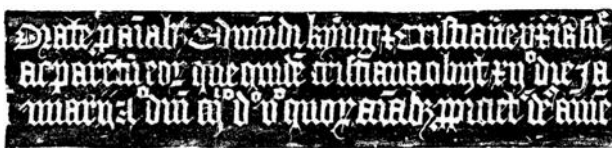 Orate p aīabȝ Edmūdi kyng & Cristiane
ac parētū eoꝝ que quidē cristiana obijt xvº die Ja
nuarij Aº dñi mº dº vº quoꝝ aīabȝ ppiciet' de' amē